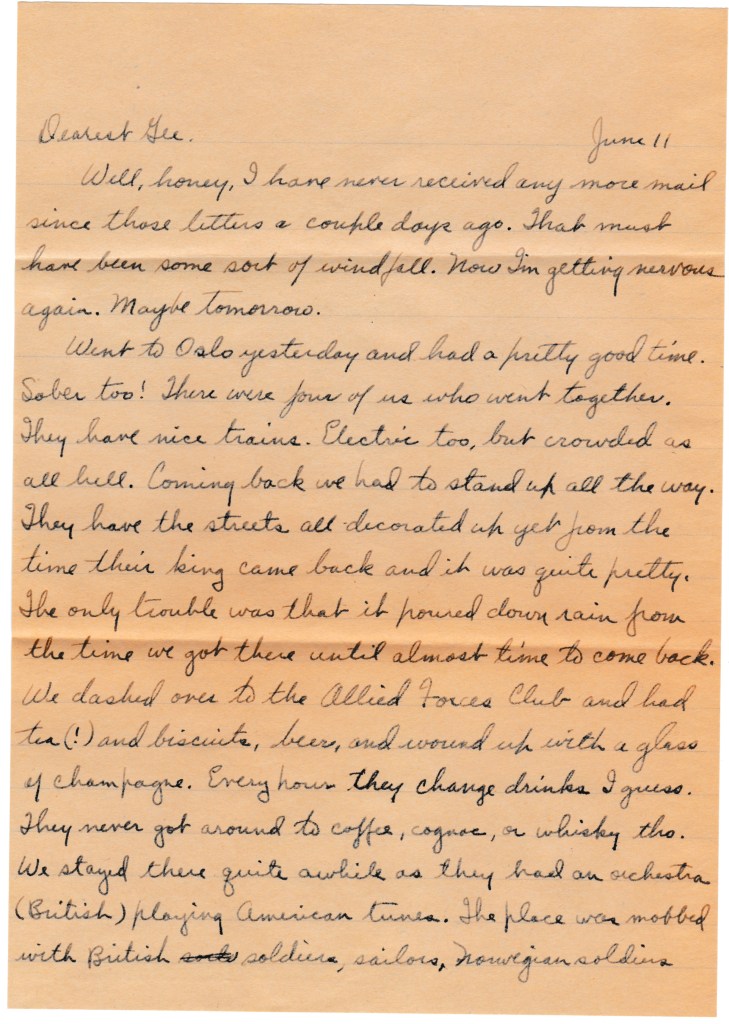 Dearest Gee.
June 11
Well, honey, I have never received any more mail
since those letters a couple days ago. That must
have been some sort of windfall. Now I'm getting nervous
again. Maybe tomorrow.
Went to Oslo yesterday and had a pretty good time.
Sober too! There were four of us who went together.
They have nice trains. Electric too, but crowded as
all hell. Coming back we had to stand up all the way.
They have the streets all decorated up yet from the
time their king came back and it was quite pretty.
The only trouble was that it poured down rain from
the time we got there until almost time to come back.
We dashed over to the Allied Forces Club and had
tea (!) and biscuits, beer, and wound up with a glass
of champagne. Every hour they change drinks I guess.
They never got around to coffee, cognac, or whisky tho.
We stayed there quite awhile as they had an orchestra
(British) playing American tunes. The place was mobbed
with British soldiers, sailors, Norwegian soldiers